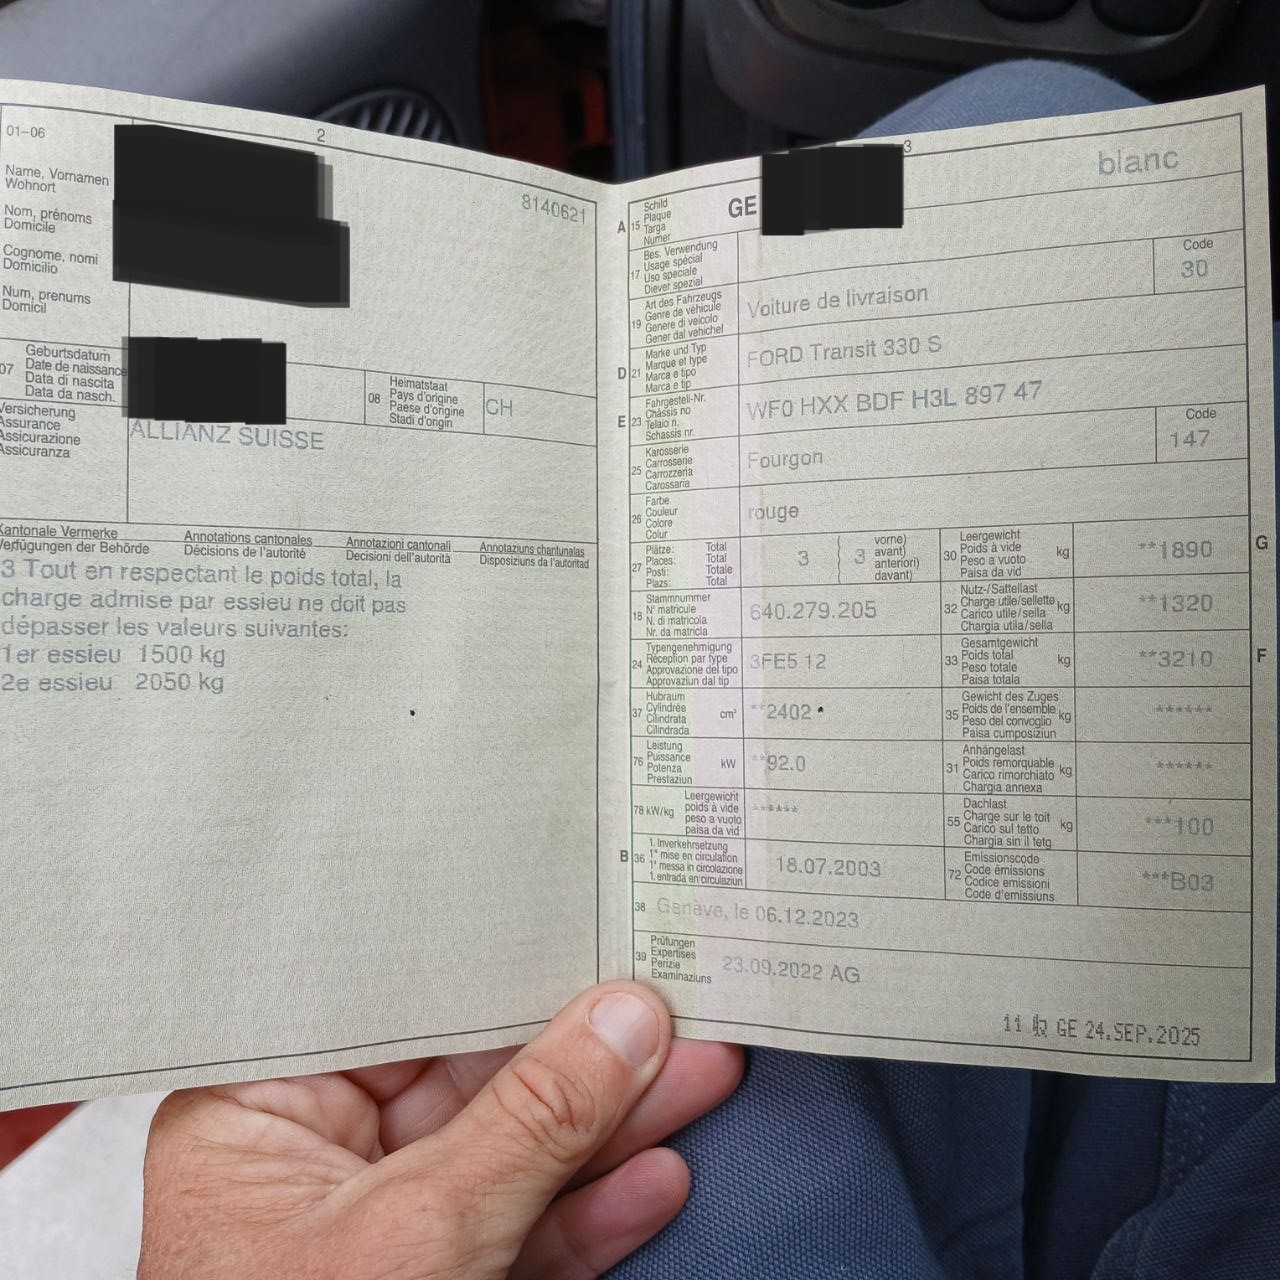 2
01–06
Name, Vornamen
Wohnort
Nom, prénoms
Domicile
Cognome, nomi
Domicilio
Num, prenums
Domicil
8140621
07
Geburtsdatum
Date de naissance
Data di nascita
Data da nasch.
08
Heimatstaat
Pays d'origine
Paese d'origine
Stadi d'origin
CH
Versicherung
Assurance
Assicurazione
Assicuranza
ALLIANZ SUISSE
Kantonale Vermerke
Verfügungen der Behörde
Annotations cantonales
Décisions de l'autorité
Annotazioni cantonali
Decisioni dell'autorità
Annotaziuns chantunalas
Disposiziuns da l'autoritad
3 Tout en respectant le poids total, la
charge admise par essieu ne doit pas
dépasser les valeurs suivantes:
1er essieu 1500 kg
2e essieu 2050 kg
3
A
15
Schild
Plaque
Targa
Numer
GE
blanc
17
Bes. Verwendung
Usage spécial
Uso speciale
Diever spezial
Code
30
19
Art des Fahrzeugs
Genre de véhicule
Genere di veicolo
Gener dal vehichel
Voiture de livraison
D
21
Marke und Typ
Marque et type
Marca e tipo
Marca e tip
FORD Transit 330 S
E
23
Fahrgestell-Nr.
Châssis no
Telaio n.
Schassis nr.
WF0 HXX BDF H3L 897 47
25
Karosserie
Carrosserie
Carrozzeria
Carossaria
Fourgon
Code
147
26
Farbe
Couleur
Colore
Colur
rouge
27
Plätze: Total
Places: Total
Posti: Totale
Plazs: Total
3
3
vorne)
avant)
anteriori)
davant)
30
Leergewicht
Poids à vide
Peso a vuoto
Paisa da vid
kg
**1890
G
18
Stammnummer
N° matricule
N. di matricola
Nr. da matricla
640.279.205
32
Nutz-/Sattellast
Charge utile/sellette
Carico utile/sella
Chargia utila/sella
kg
**1320
24
Typengenehmigung
Réception par type
Approvazione del tipo
Approvaziun dal tip
3FE5 12
33
Gesamtgewicht
Poids total
Peso totale
Paisa totala
kg
**3210
F
37
Hubraum
Cylindrée
Cilindrata
Cilindrada
cm³
**2402
35
Gewicht des Zuges
Poids de l'ensemble
Peso del convoglio
Paisa cumposiziun
kg
******
76
Leistung
Puissance
Potenza
Prestaziun
kW
**92.0
31
Anhängelast
Poids remorquable
Carico rimorchiato
Chargia annexa
kg
******
78 kW/kg
Leergewicht
poids à vide
peso a vuoto
paisa da vid
******
55
Dachlast
Charge sur le toit
Carico sul tetto
Chargia sin il tetg
kg
***100
B
36
1. Inverkehrsetzung
1re mise en circulation
1a messa in circolazione
1. entrada en circulaziun
18.07.2003
72
Emissionscode
Code émissions
Codice emissioni
Code d'emissiuns
***B03
38
Genève, le 06.12.2023
39
Prüfungen
Expertises
Perizie
Examinaziuns
23.09.2022 AG
11
GE 24.SEP.2025